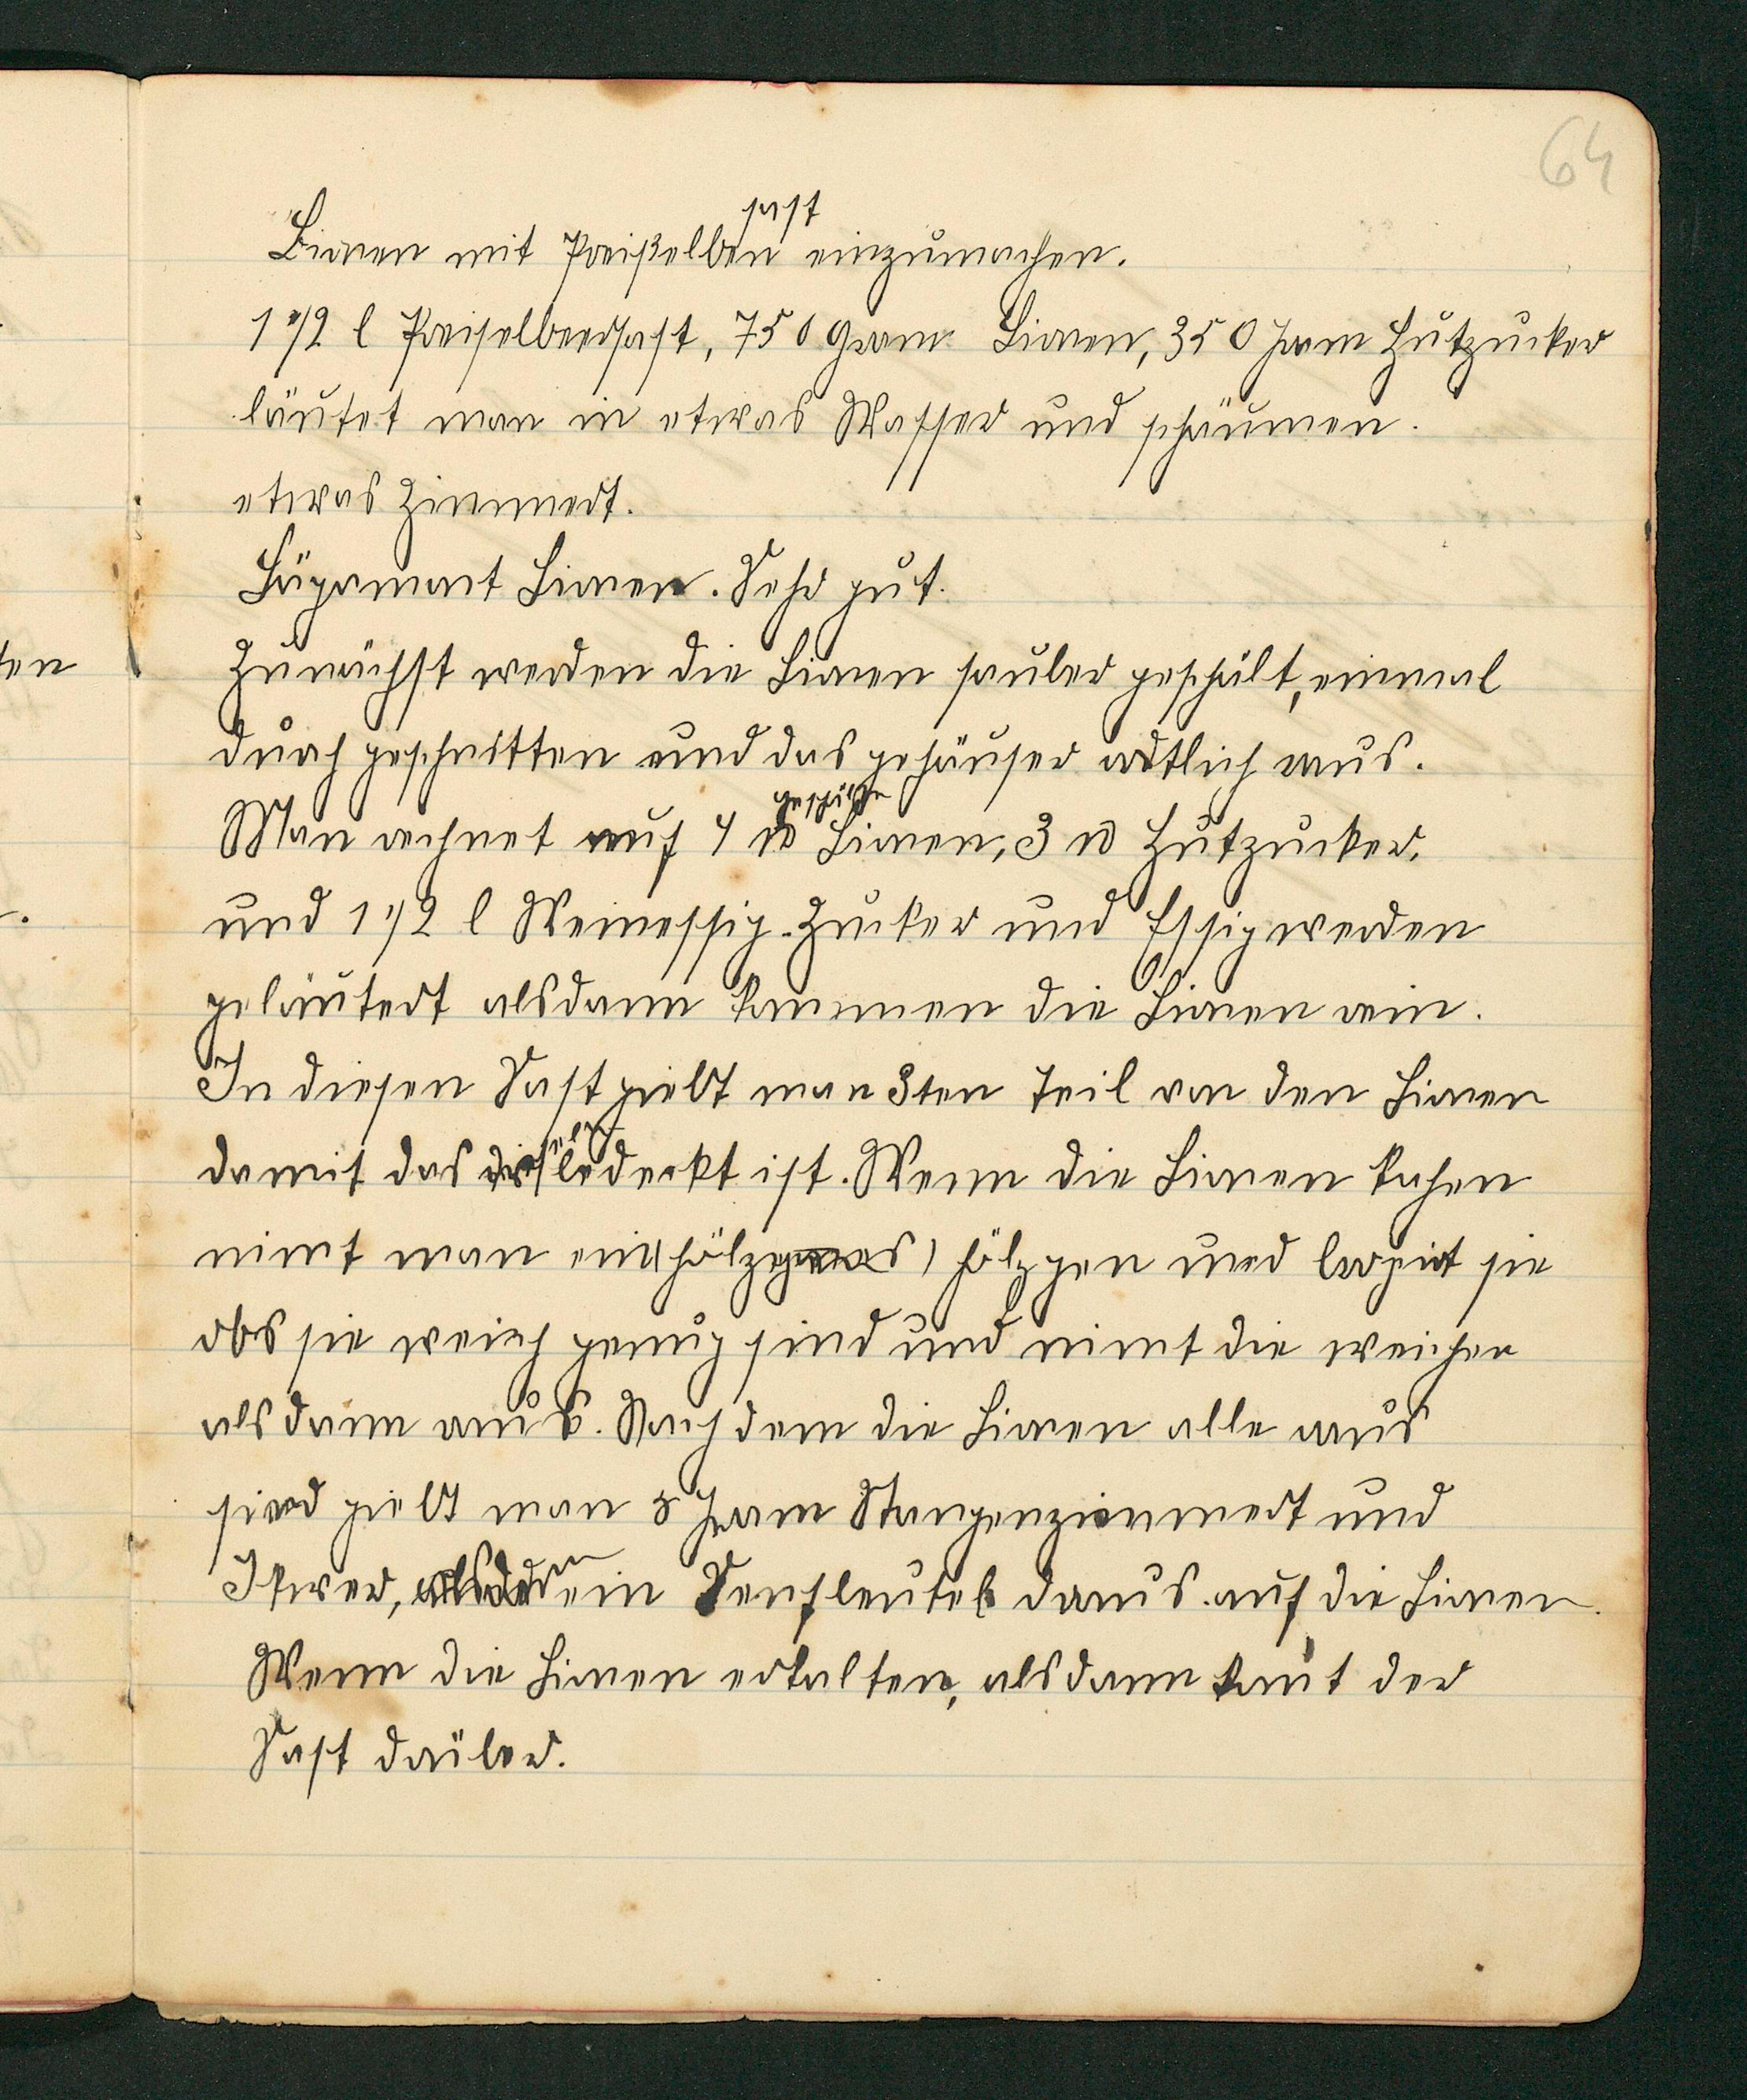 64
saft
Birnen mit Preißelben einzumachen.
1 1/2 l Preiselbeersaft, 750 Gram Birnen, 350 Gram Hutzucker
läutet man in etwas Wasser und schäumen.
etwas Zimmert.
Birnen. Sehr gut.
Zunächst werden die Birnen sauber geschält, einmal
durch geschnitten und das gehäuser aus.
geschälte
Man rechnet auf 4 ℔ Birnen, 3 ℔ Hutzucker,
und 1 1/2 l Weinessig. Zucker und Essig werden
geläutert alsdann kommen die Birnen rein.
In diesen Saft giebt man 3ten Teil von den Birnen
damit das bedeckt ist. Wenn die Birnen kochen
nimt man ein hölzgen und sie
obs sie weich genug sind und nimt die weichen
als dann aus. Nach dem die Birnen alle raus
sind giebt man 8 Gram Stangenzimmert und
Ikwer, alsdann ein Senfbeutel daraus auf die Birnen.
Wenn die Birnen erkalten, alsdann komt der
Saft drüber.
ten